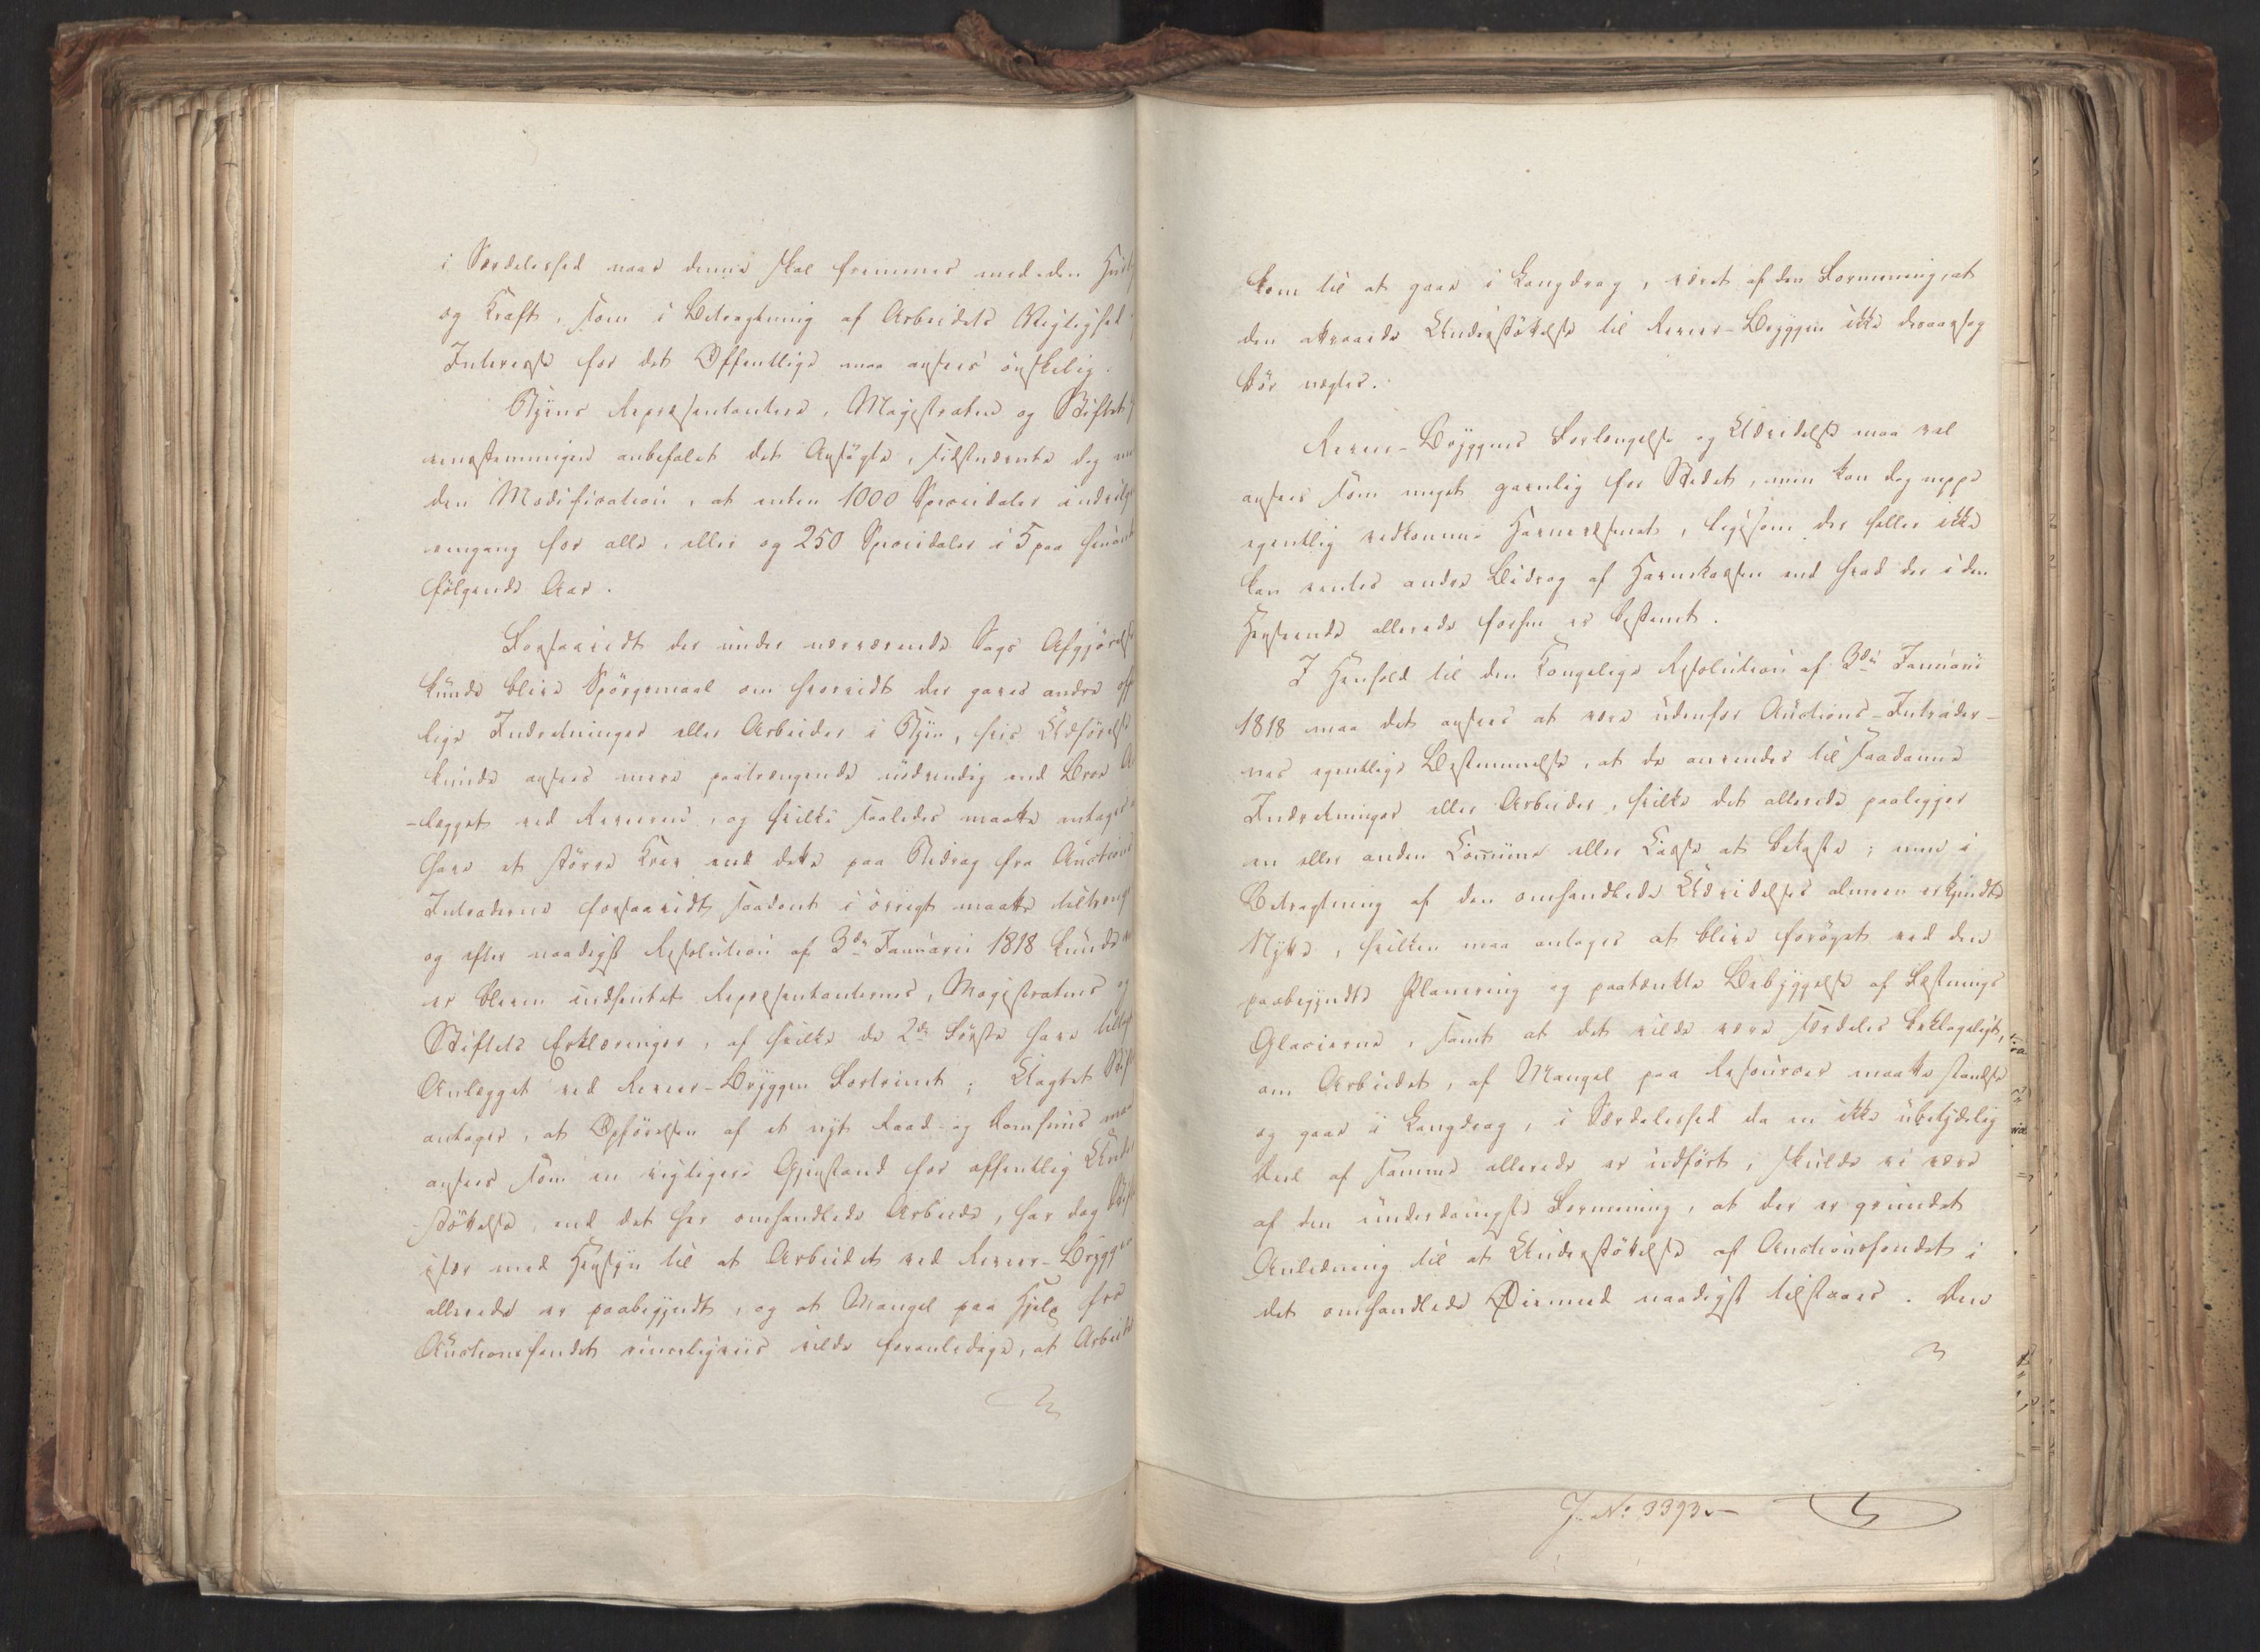 i Særdeleshed naar denne skal fremmes med den
og Kraft, som i Betragtning af Arbeidets Vigtighed
Interesse for det Offentlige maa ansees ønskelig.
Byens Repræsentantere, Magistraten og Stiftet
eenstemmigen anbefalet det Ansøgte, sidstnævnte dog
den Modification, at enten 1000 Speciedaler
eengang for alle, eller og 250 Speciedaler i 5 paa
følgende Aar.
Forsaavidt der under nærværende Sags Afgjørelse
kunde blive Spørgsmaal om hvorvidt der gaves andre
lige Indretninger eller Arbeider i Byen, hvis Udførelse
kunde ansees mere paatrængende nødvendig end
-lægget ved Revieren, og hvilke saaledes maatte antages
have et større Krav end dette paa Bidrag fra Auctions
Intraderne forsaavidt saadant i øvrigt maatte
og efter naadigst Resolution af 3die Januarii 1818 kunde
er bleven indhentet Repræsentanternes, Magistratens og
Stiftets Erklæringer, af hvilke de 2de første have
Anlægget ved Revier-Bryggen Fortrinet; Uagtet
antager, at Opførelsen af et nyt Raad- og Domhuus maa
ansees som en vigtigere Gjenstand for offentlig
-støttelse, end det her omhandlede Arbeide, har dog
især med Hensyn til at Arbeidet ved Revier-Bryggen
allerede er paabegyndt, og at Mangel paa Hjelp fra
Auctionsfondet rimeligviis vilde foranledige, at Arbeidet
kom til at gaae i Langdrag, været af den Formening, at
den attraaede Understøttelse til Revier-Bryggen ikke desaarsag
bør negtes.
Revier-Bryggens Forlængelse og Udvidelse maa vel
ansees som meget gavnlig for Stedet, men kan dog neppe
egentlig vedkomme Havnevæsenet, ligesom der heller ikke
kan ventes andre Bidrag af Havnekassen end hvad der i den
Henseende allerede forhen er bestemt.
I Henhold til den Kongelige Resolution af 3die Januarii
1818 maa det ansees at være udenfor Auctions-Intrader-
nes egentlige Bestemmelse, at de anvendes til saadanne
Indretninger eller Arbeider, hvilke det allerede paaligger
en eller anden Comune eller Casse at bekoste; men i
Betragtning af den omhandlede Udvidelses almeen erkjendte
Nytte, hvilken maa antages at blive forøget ved den
paabegyndte Planering og paatænkte Bebyggelse af Fæstnings
Glacierne, samt at det vilde være særdeles beklageligt,
om Arbeidet, af Mangel paa Resourcer maatte standse
og gaae i Langdrag, i Særdeleshed da en ikke ubetydelig
Deel af samme allerede er udført, skulde vi være
af den underdanigste Formening, at der er grundet
Anledning til at Understøttelse af Auctionsfondet i
det omhandlede Øiemed naadigst tilstaaes. Den
J. No 3393.